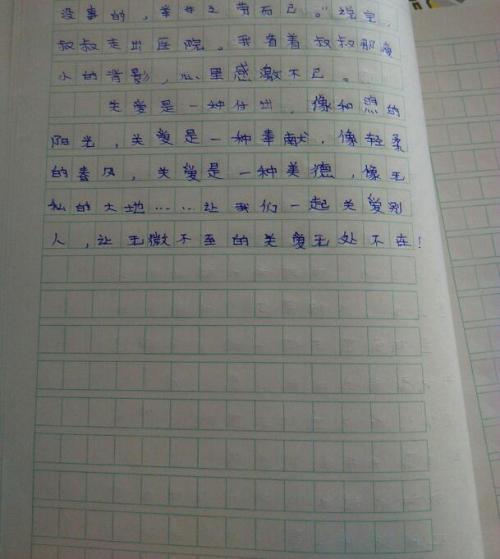 没事的，举手之劳而已。”说完，
叔叔走出医院。我看着叔叔那渐
小的背影，心里感激不已。
关爱是一种付出，像和煦的
阳光，关爱是一种奉献，像轻柔
的春风，关爱是一种美德，像无
私的大地……让我们一起关爱别
人，让无微不至的关爱无处不在！